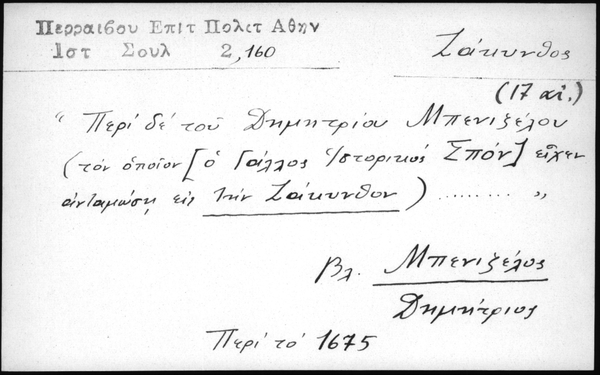 Περραιβου Επιτ Πολετ Αθην
Ιστ Σουλ 2,160
Ζάκυνθος
(17 αἰ.)
" Περί δέ τοῦ Δημητρίου Μπενιζέλου
(τόν ὁποῖον [ὁ Γάλλος ἱστορικός Σπόν] εἶχεν
ἀνταμώσῃ εἰς τήν Ζάκυνθον) ......... "
βλ. Μπενιζέλος
Δημήτριος
Περί τό 1675